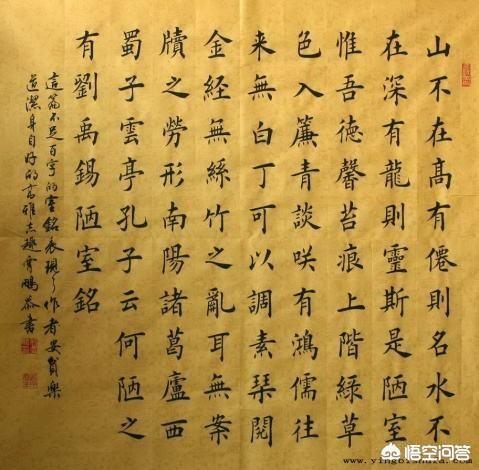 山不在高有僊則名水不
在深有龍則靈斯是陋室
惟吾德馨苔痕上階緑草
色入簾青談咲有鴻儒往
来無白丁可以調素琴閱
金經無絲竹之亂耳無案
牘之勞形南陽諸葛廬西
蜀子雲亭孔子云何陋之
有劉禹錫陋室銘
這篇不足百字的室銘表現了作者安貧樂
道潔身自好的高雅志趣鵬恭書
悟空问答
www.yingbishufa.com